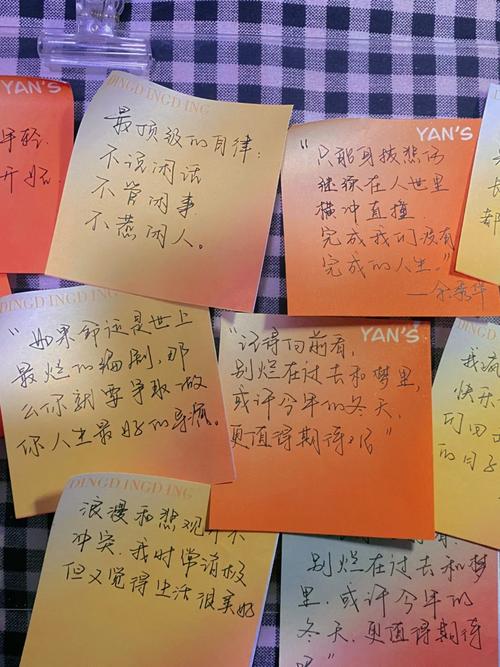 YAN'S
年轻.
开始.
DINGDINGDING
最顶级的自律:
不说闲话
不管闲事
不惹闲人。
YAN'S
"只能身披悲伤
继续在人世里
横冲直撞
完成我们没有
完成的人生."
——余秀华
DINGDINGDING
"如果命运是世上
最烂的编剧,那
么你就要争取做
你人生最好的导演。
YAN'S
"记得向前看,
别烂在过去和梦里,
或许今年的冬天,
更值得期待呢"
我疯
快乐
们回
的日子
DINGDINGDING
浪漫和悲观并不
冲突.我时常消极
但又觉得生活很美好
别烂在过去和梦
里.或许今年的
冬天.更值得期待
呢"